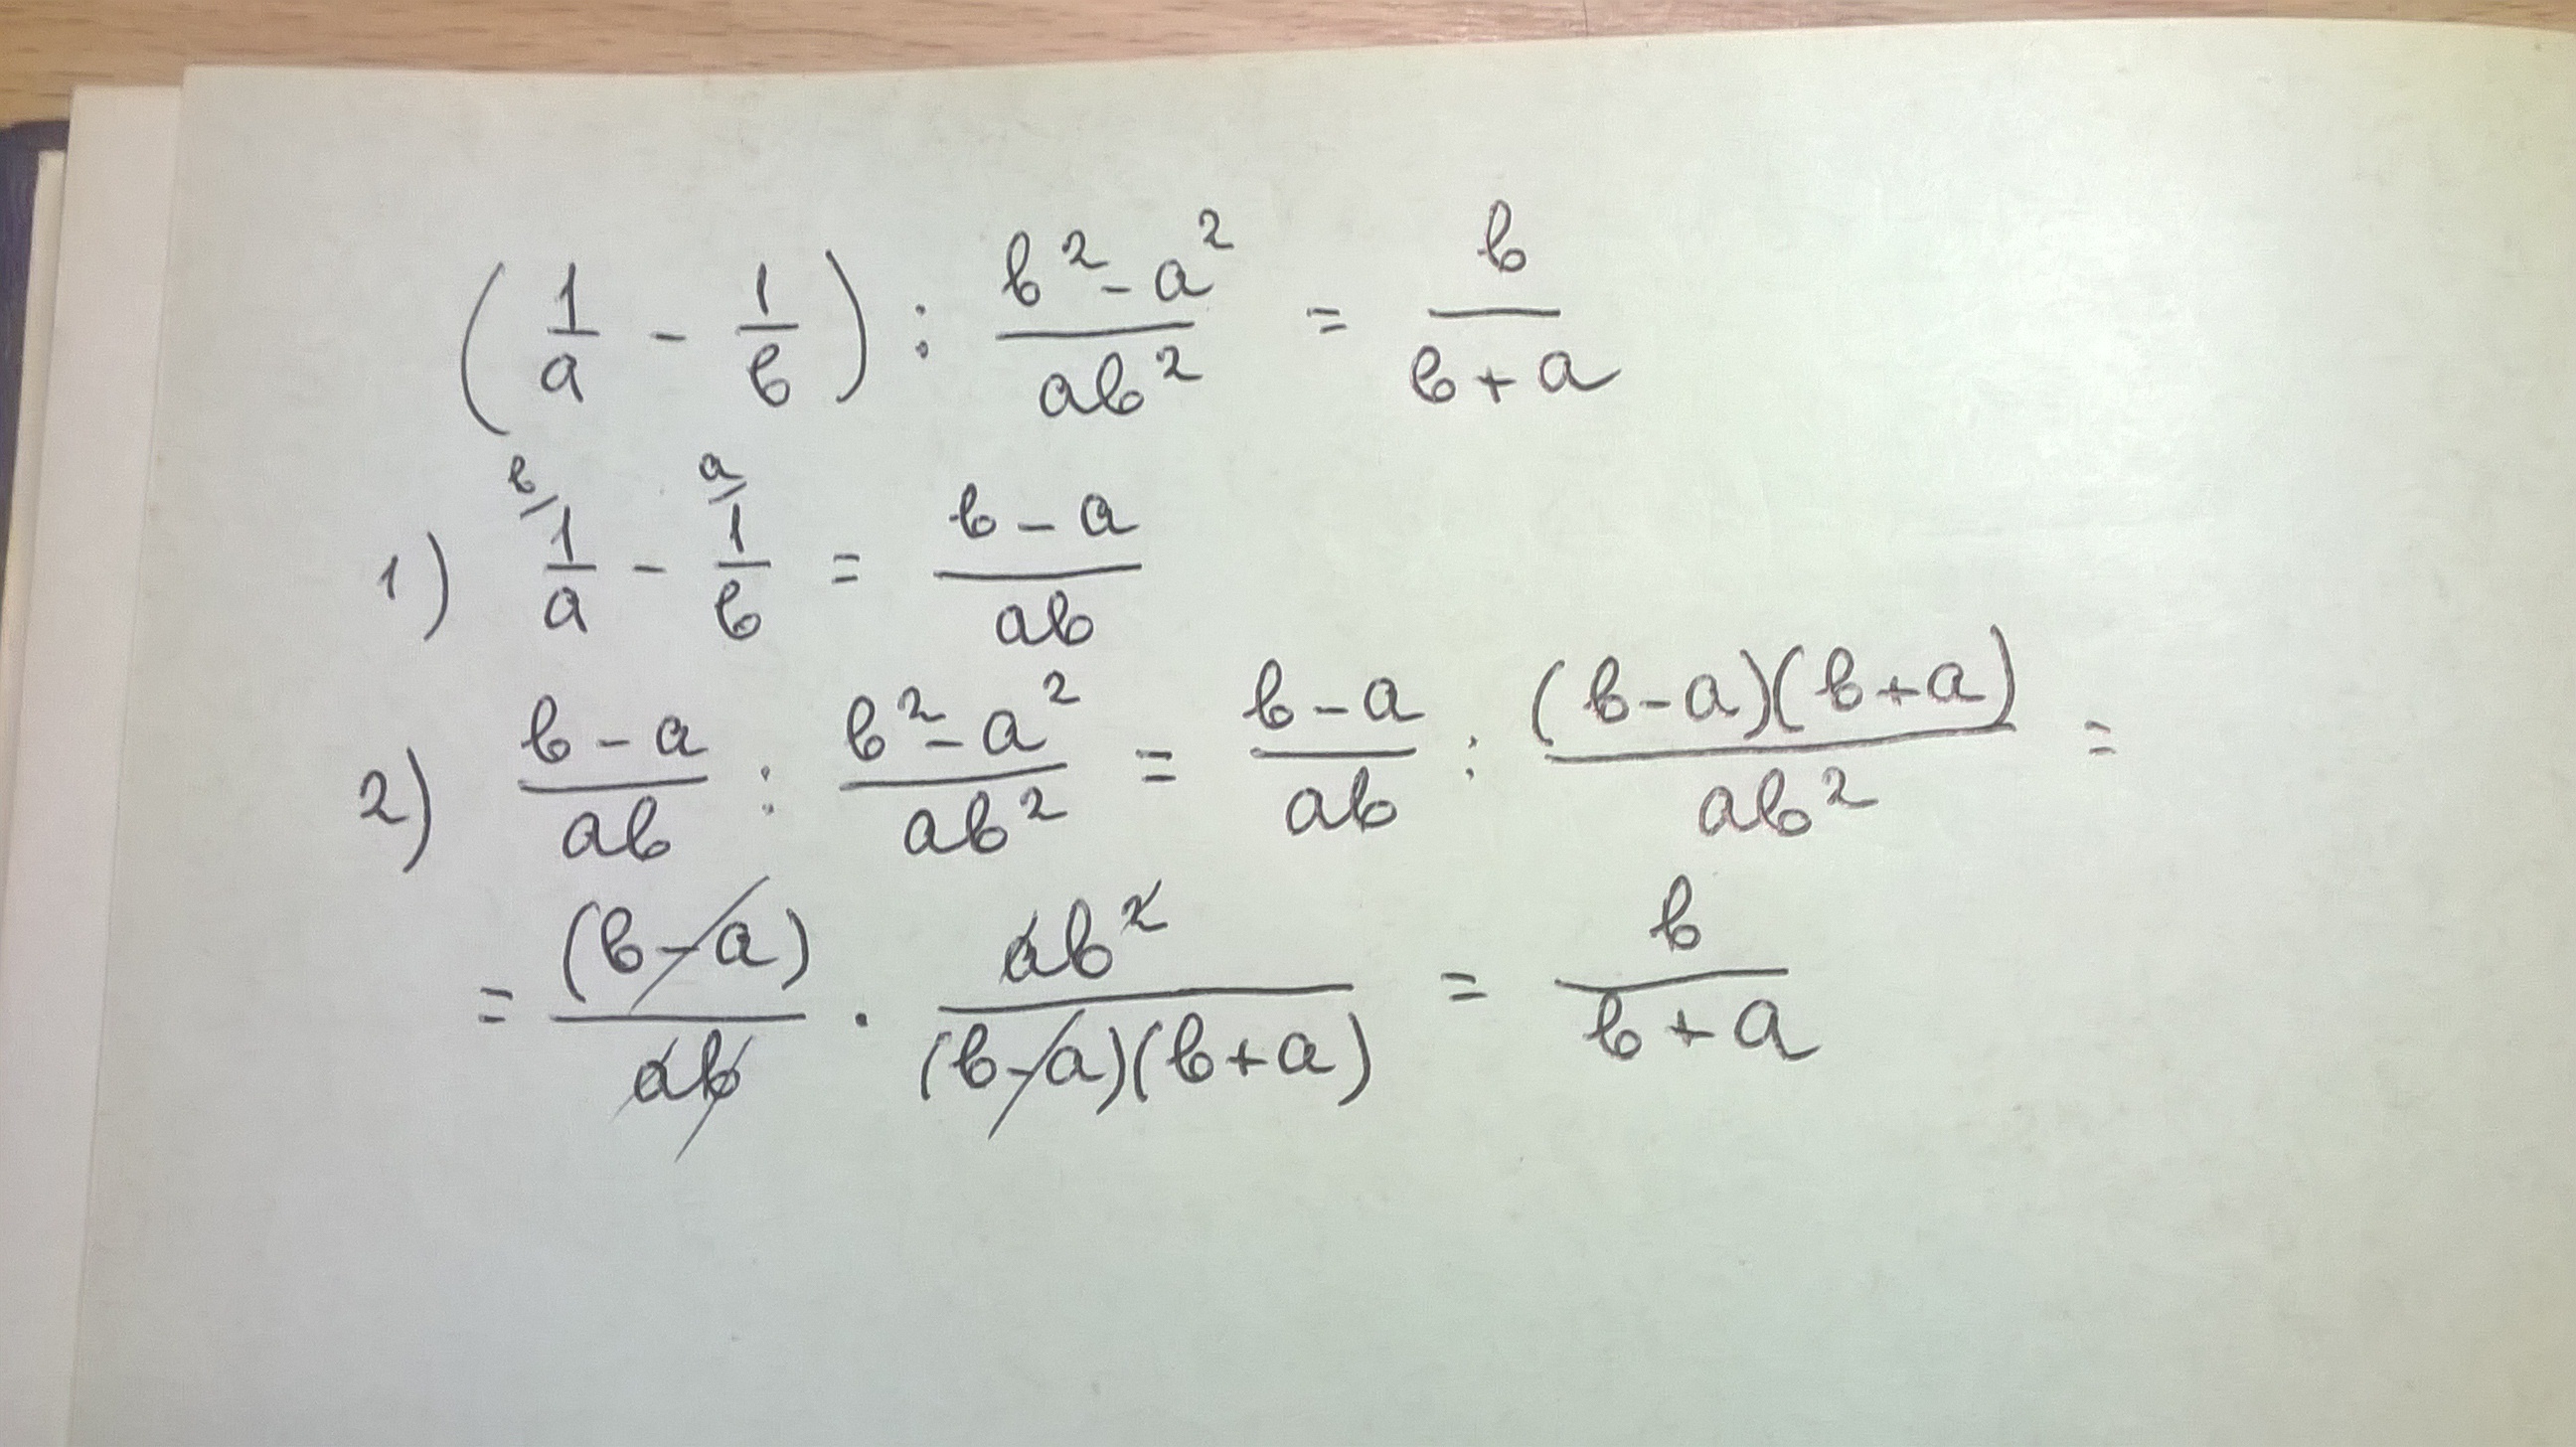 (1/a - 1/b) : (b² - a²)/(ab²) = b/(b + a)
1) ᵇ/1/a - ᵃ/1/b = (b - a)/(ab)
2) (b - a)/(ab) : (b² - a²)/(ab²) = (b - a)/(ab) : ((b - a)(b + a))/(ab²) =
= (b - a)/(ab) · (ab²)/((b - a)(b + a)) = b/(b + a)